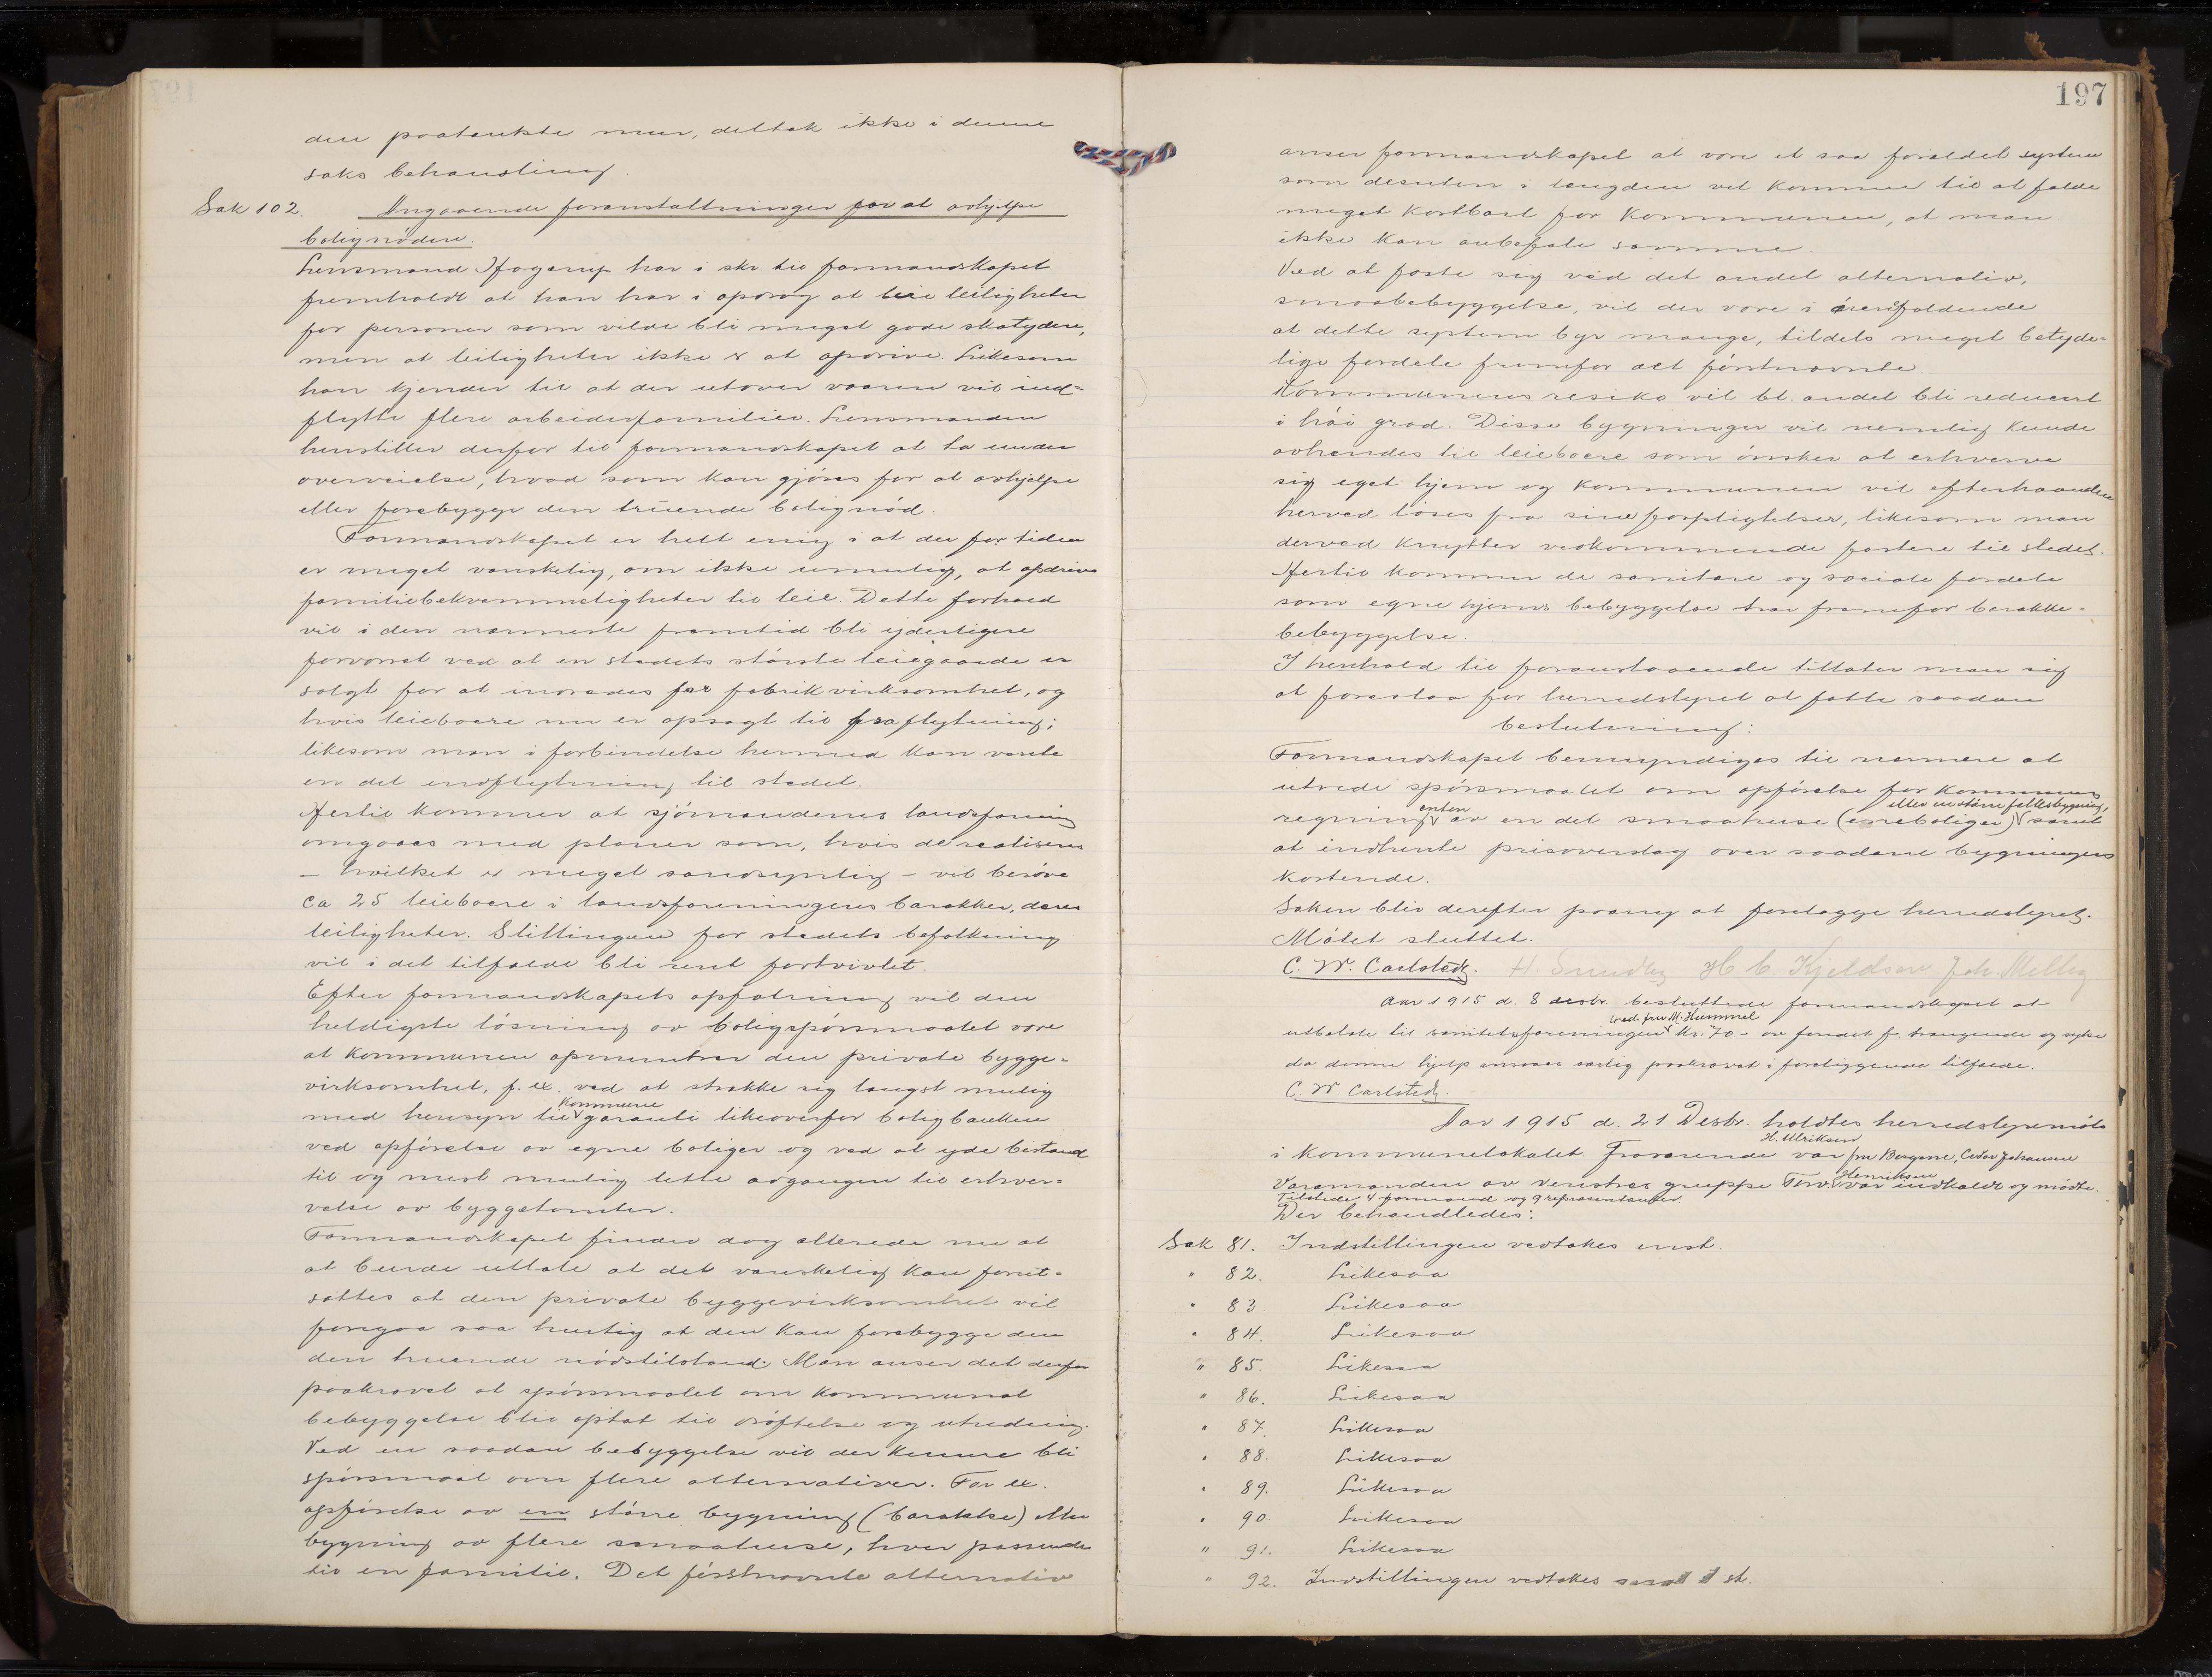 den paatænkte mur, deltok ikke i denne
saks behandling.
Sak 102. Angaaende foranstaltninger for at avhjelpe
bolignøden.
Lensmand Fogerup har i skr. til formandskapet
fremholdt at han har i opdrag at leie leiligheter
for personer som vilde bli meget gode skatydere,
men at leiligheter ikke er at opdrive. Likesom
han kjender til at der utover vaaren vil ind-
flytte flere arbeiderfamilier. Lensmanden
henstiller derfor til formandskapet at ta under
overveielse, hvad som kan gjøres for at avhjelpe
eller forebygge den truende bolignød.
Formandskapet er helt enig i at der for tiden
er meget vanskelig, om ikke umulig, at opdrive
familiebekvemmeligheter til leie. Dette forhold
vil i den nærmeste fremtid bli yderligere
forværret ved at en stedets største leiegaarde er
solgt for at indredes for fabrikvirksomhet, og
hvis leieboere nu er opsagt til fraflytning;
likesom man i forbindelse hermed kan vente
en del indflytning til stedet.
Hertil kommer at sjømandenes landsforening
omgaaes med planer som, hvis de realiseres
– hvilket er meget sandsynlig – vil berøve
ca 25 leieboere i landsforeningens barakker, deres
leiligheter. Stillingen for stedets befolkning
vil i det tilfælde bli rent fortvivlet.
Efter formandskapets opfatning vil den
heldigste løsning av boligspørsmaalet være
at kommunen opmuntrer den private bygge-
virksomhet, f. ex. ved at strække sig længst mulig
med hensyn til kommune garanti likeoverfor boligbanken
ved opførelse av egne boliger og ved at yde bistand
til og mest mulig lette adgangen til erhver-
velse av byggetomter.
Formandskapet finder dog allerede nu at
at burde uttale at det vanskelig kan forut-
sættes at den private byggevirksomhet vil
foregaa saa hurtig at den kan forebygge den
den truende nødstilstand. Man anser det derfor
paakrævet at spørsmaalet om kommunal
bebyggelse blir optat til drøftelse og utredning.
Ved en saadan bebyggelse vil der kunne bli
spørsmaal om flere alternativer. For ex.
opførelse av en større bygning (barakke) eller
bygning av flere smaahuse, hver passende
til en familie. Det førstnævnte alternativ
197
anser formandskapet at være et saa forældet system
som desuten i længden vil komme til at falde
meget kostbart for kommunen, at man
ikke kan anbefale samme.
Ved at feste sig ved det andet alternativ,
smaabebyggelse, vil der være i
at dette system byr mange, tildels meget betyde-
lige fordele fremfor det førstnævnte.
Kommunens resiko vil bl. andet bli reducert
i høi grad. Disse bygninger vil nemlig kunde
avhendes til leieboere som ønsker at erhverve
sig eget hjem og kommunen vil efterhaanden
herved løses fra sine forpligtelser, likesom man
derved knytter vedkommende fastere til stedet.
Hertil kommer de sanitære og sociale fordele
som egne hjems bebyggelse har fremfor barakke-
bebyggelse.
I henhold til foranstaaende tillater man sig
at foreslaa for herredstyret at fatte saadan
beslutning:
Formandskapet bemyndiges til nærmere at
utrede spørsmaalet om opførelse for kommunens
regning enten av en del smaahuse (eneboliger) eller en større fællesbygning, samt
at indhente prisoverslag over saadane bygningers
kostende.
Saken blir derefter paany at forelægge herredstyret.
Møtet sluttet.
C. W. Carlstedt. H. Sundby H C. Kjeldsen Joh. Melby
Aar 1915 d. 8 desbr. besluttede formandskapet at
utbetale til sanitetsforeningen ved fru M. Hummel kr. 70.- av fondet f. trængende og syke
da denne hjelp ansees særlig paakrævet i foreliggende tilfælde.
C. W. Carlstedt.
Aar 1915 d. 21 Desbr. holdtes herredstyremøte
i kommunelokalet. Fraværende var H. Ulriksen fru Bergene, Johansen
Varamanden av venstres gruppe Henriksen var indkaldt og mødte.
Tilstede 4 formænd og 9 repræsentanter.
Der behandledes:
Sak 81. Indstillingen vedtakes enst.
" 82. Likesaa
" 83. Likesaa
" 84. Likesaa
" 85. Likesaa
" 86. Likesaa
" 87. Likesaa
" 88. Likesaa
" 89. Likesaa
" 90. Likesaa
" 91. Likesaa
" 92. Indstillingen vedtakes